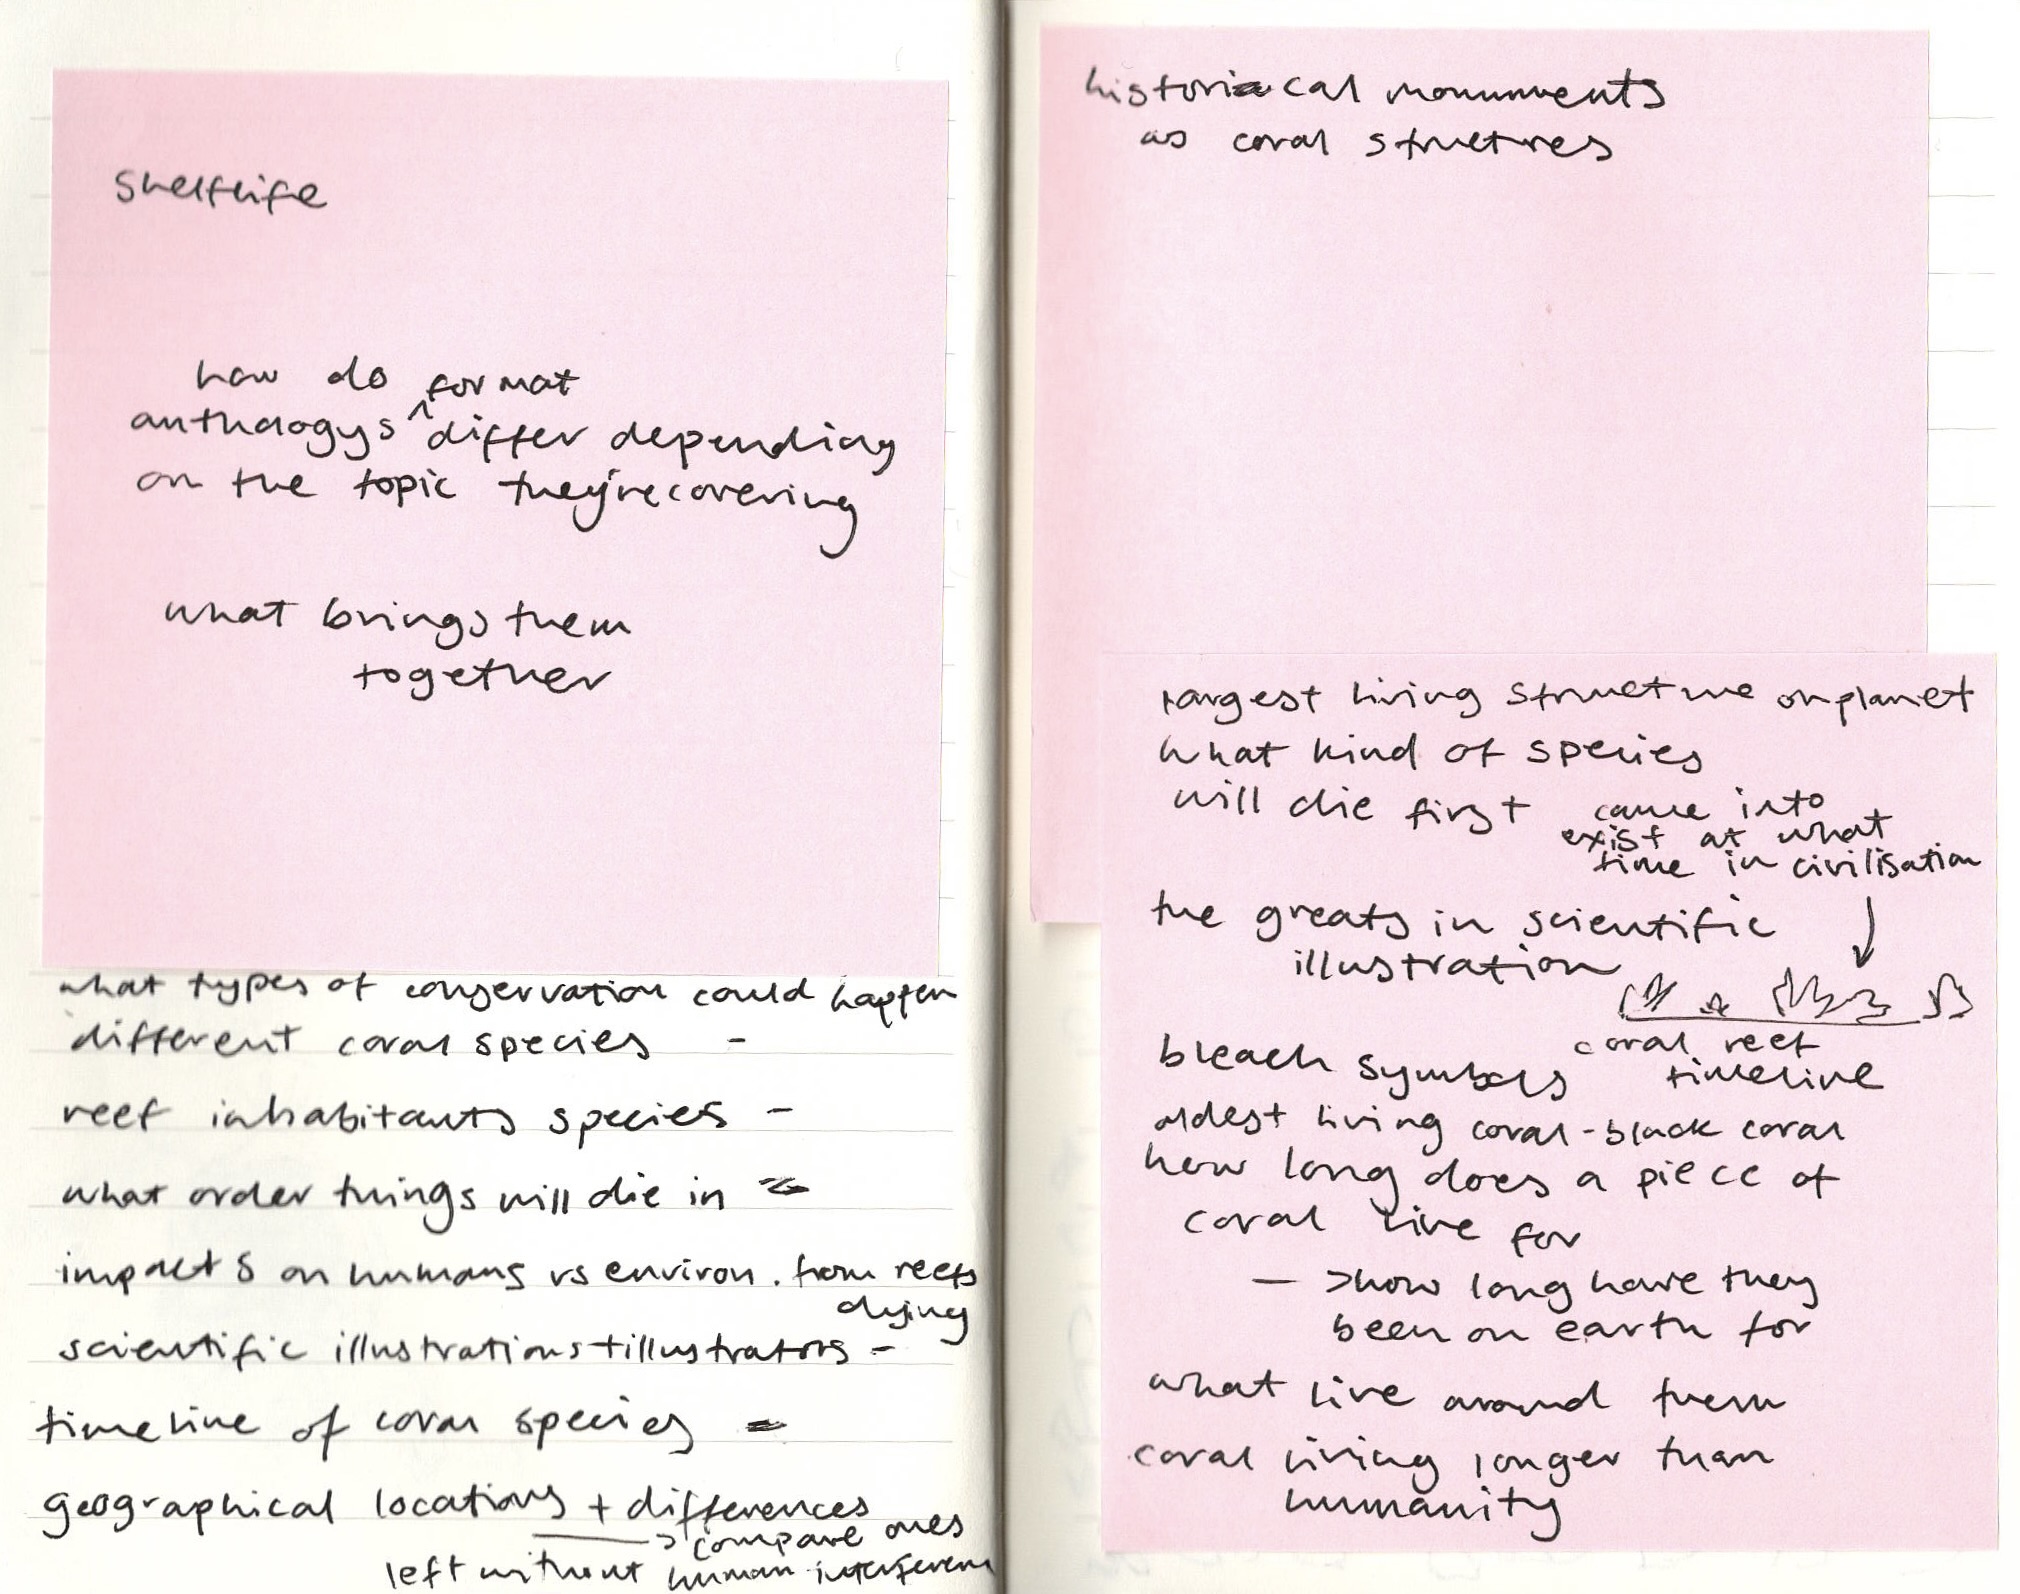 shelflife
how do format
anthologys ^ differ depending
on the topic they're covering
what brings them
together
what types of conservation could happen
different coral species -
reef inhabitants species -
what order things will die in -
impacts on humans vs environ. from reefs
dying
scientific illustrations + illustrators -
timeline of coral species -
geographical locations + differences
-> compare ones
left without human interferenc
historical monuments
as coral structures
largest living structure on planet
what kind of species
will die first
came into
exist at what
time in civilisation
the greats in scientific
illustration
coral reef
timeline
bleach symbols
oldest living coral - black coral
how long does a piece of
coral live for
-> how long have they
been on earth for
what live around them
coral living longer than
humanity